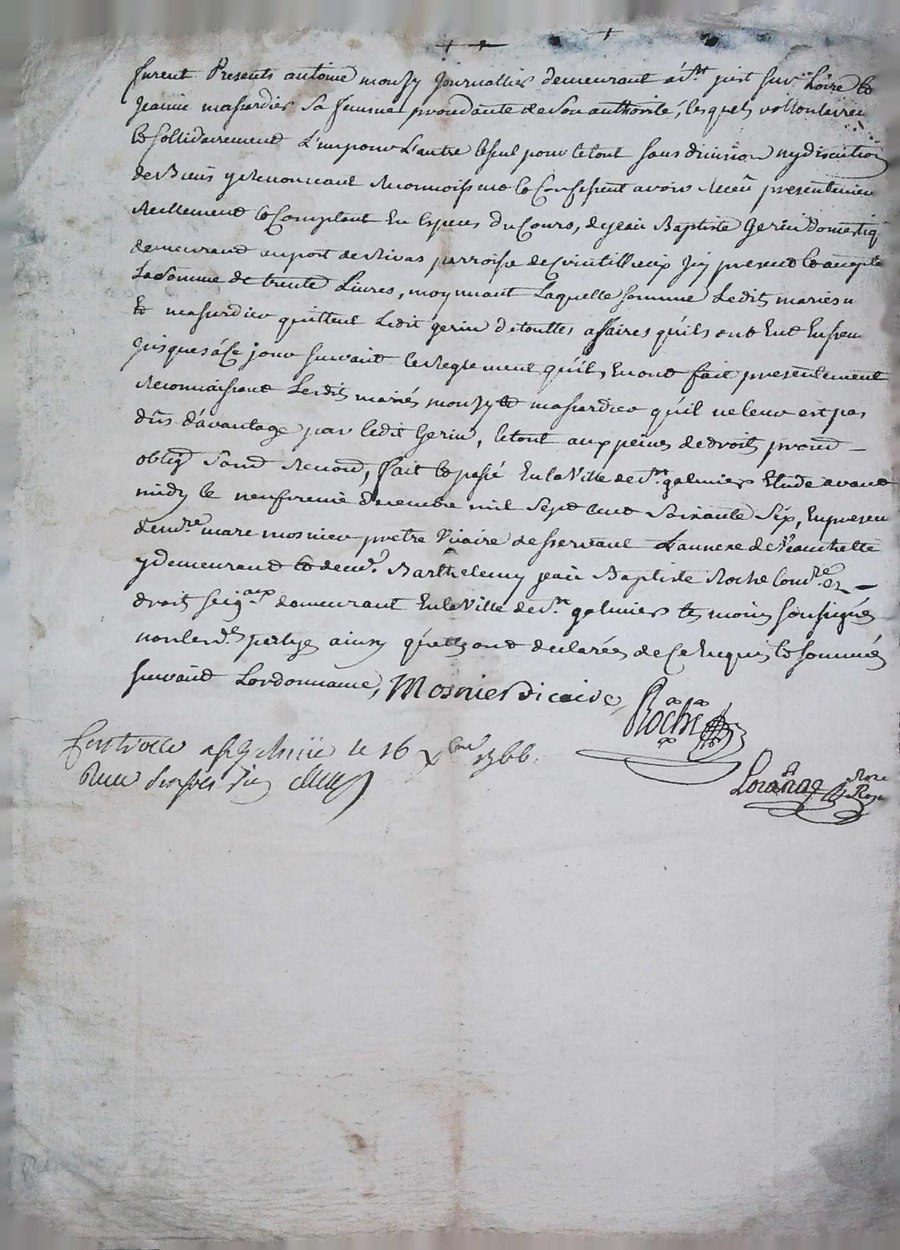 furent Presents antoine monzy Journallier demeurant a St just sur Loire &
Jeanne massardier Sa femme procedante de Son authorité, lesquels vollontairem
& Sollidairement L'un pour L'autre le seul pour le tout Sans division ny discution
de Biens y Renonceant Reconnoissent & Confessent avoir Receu presentemen
Reellement & Comptant En Especes du Cours, de jean Baptiste Gerin domestiq
demeurand au port de Rivas parroisse de Cuintillieux Icy present & accepta
La Somme de trente Livres, moyenant Laquelle Somme Ledits mariés
& massardier quittent Ledit gerin de touttes affaires qu'ils ont Eut Ensem
Jusques a Ce jour Suivant le Reglement qu'ils En ont fait presentement
Reconnaissant Lesdits mariés monzy & massardier qu'il ne leur est pas
dus d'avantage par ledit Gerin, le tout aux peines de droit promd
obligd Soumd Renond, fait & passé En la Ville de St galmier Etude avant
midy le neufvieme decembre mil Sept Cent Soixante Six, En presen
de mre marc mosnier pretre Vicaire desservant L'annexe de
y demeurand & de mr Barthelemy jean Baptiste Roche Comre En
droit seigaux demeurant En la Ville de St galmier temoins Soussignés
non lesd parties ainsy qu'elles ont declarées de Ce Enquis & Sommés
Suivant Lordonnance, Mosnier Vicaire
Roche
Contrôllé a St Galmier le 16 Xbre 1766.
Reçu
Lorange